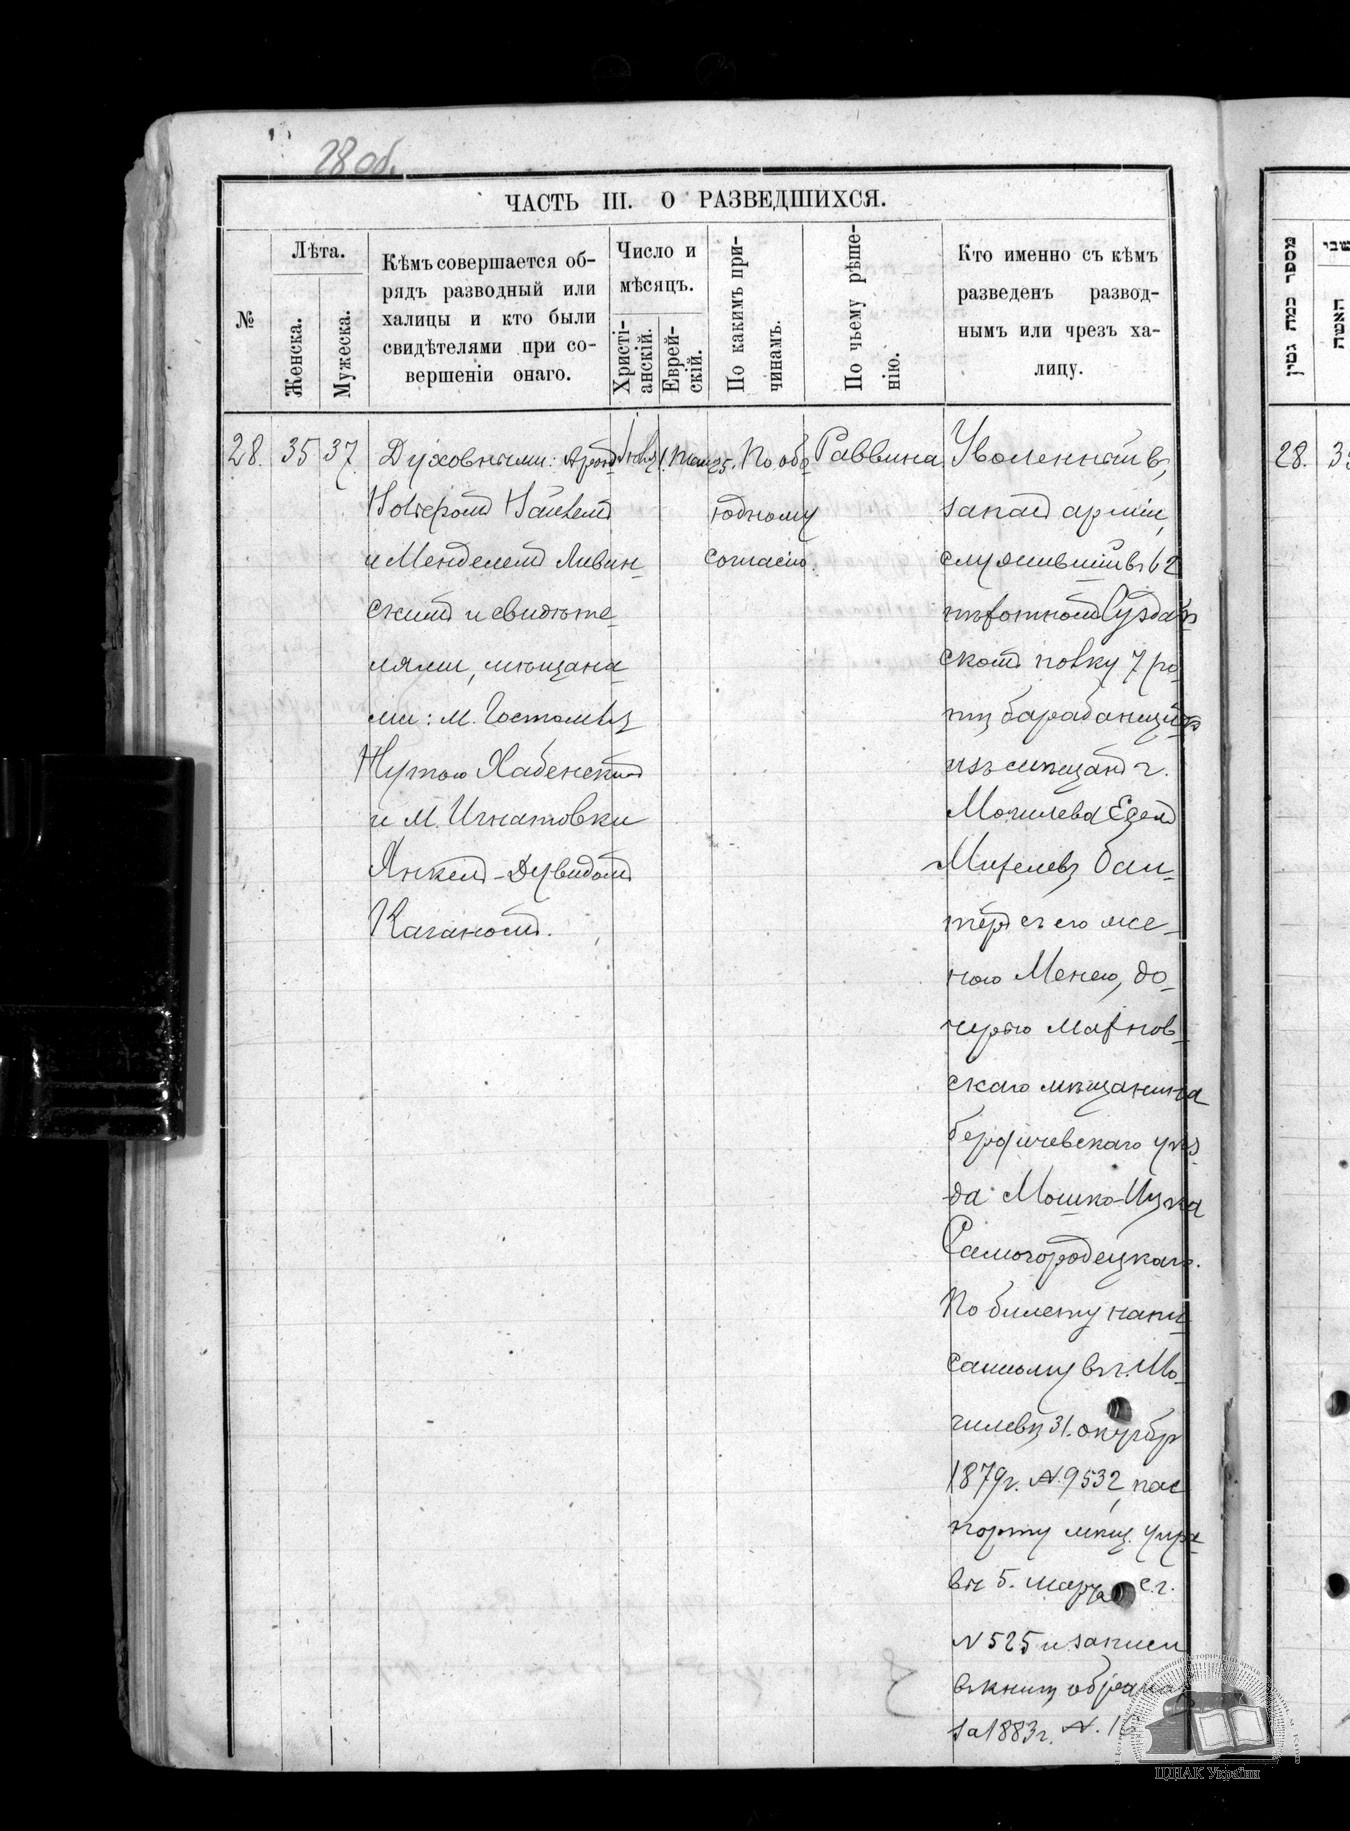 28 об.
ЧАСТЬ III. О РАЗВЕДШИХСЯ.
№
Лѣта.
Женска.
Мужеска.
Кѣмъ совершается об-
рядъ разводный или
халицы и кто были
свидѣтелями при со-
вершеніи онаго.
Число и
мѣсяцъ.
Христі-
анскій.
Еврей-
скій.
По какимъ при-
чинамъ.
По чьему рѣше-
нію.
Кто именно съ кѣмъ
разведенъ развод-
нымъ или чрезъ ха-
лицу.
28. 35 37
Духовными:
и Менделемъ Ливин-
скимъ и свидѣте-
лями, мѣщана-
ми: м. Гостомля
Хабенскимъ
и м. Игнатовки
Янкель-Дувидомъ
Каганомъ.
По обо-
юдному
согласію.
Раввина
Уволенный въ
запасъ арміи,
служившій въ 62
пѣхотномъ Суздаль-
скомъ полку 7 ро-
ты барабанщикъ
изъ мѣщанъ г.
Могилева
теръ съ его же-
ною Менею, до-
черью Махнов-
скаго мѣщанина
бердичевскаго уѣз-
да Мошко-Ицка
Самогородецкаго.
По билету напи-
санному въ г. Мо-
гилевѣ 31. октября
1879 г. №. 9532, пас-
порту мѣщ. упра-
вы 5. марта с. г.
№ 525 и записи
въ книгѣ о бракѣ
за 1883 г. №.
מספר כמה גטין
האשה
28.
ЦДІАК України